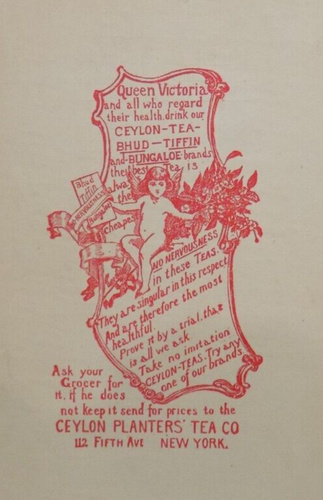 Queen Victoria
and all who regard
their health, drink our
CEYLON-TEA-
BHUD-TIFFIN
and-BUNGALOE brands
the best Tea IS
the
Cheapest
Bhud
Tiffin
NO NERVOUSNESS
in these TEAS.
They are singular in this respect
And are therefore the most
healthful.
Prove it by a trial. that
is all we ask
Take no imitation
CEYLON-TEAS. Try any
one of our brands.
Ask your
Grocer for
it, if he does
not keep it send for prices to the
CEYLON PLANTERS' TEA CO
112 FIFTH AVE NEW YORK.